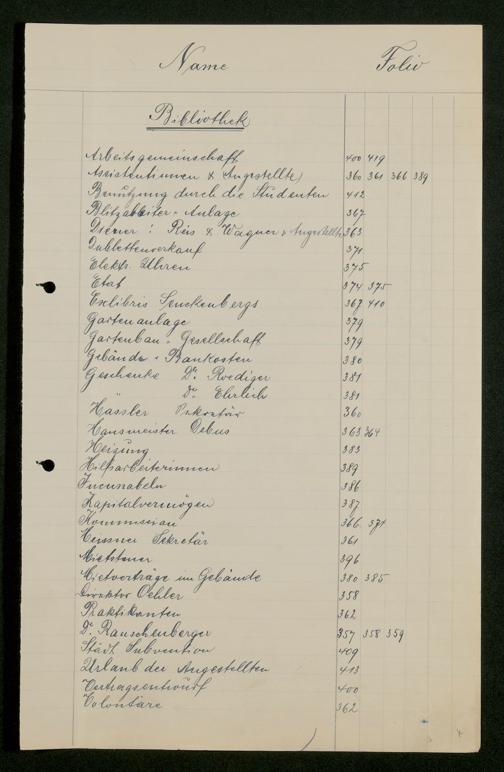 Name Folio
Bibliothek
Arbeitsgemeinschaft 400 419
Assistentinnen & Angestellte 360 361 366 389
Benützung durch die Studenten 412
Blitzableiter-Anlage 367
Diener: Reis & Wagner & Angestellte 363
Dublettenverkauf 371
Elektr. Uhren 375
Etat 374 375
Exlibris Senckenbergs 367 410
Gartenanlage 379
Gartenbau-Gesellschaft 379
Gebäude-Baukosten 380
Geschenke Dr. Roediger 381
" Dr. Ehrlich 381
Hassler Sekretär 360
Hausmeister Oebus 363 364
Heizung 383
Hilfsarbeiterinnen 389
Incunabeln 386
Kapitalvermögen 387
Kommission 366 374
Meissner Sekretär 361
Mietsteuer 396
Mietverträge im Gebäude 380 385
Direktor Oehler 358
Praktikanten 362
Dr. Rauschenberger 357 358 359
Städt. Subvention 409
Urlaub der Angestellten 413
Vertragsentwurf 400
Volontäre 362